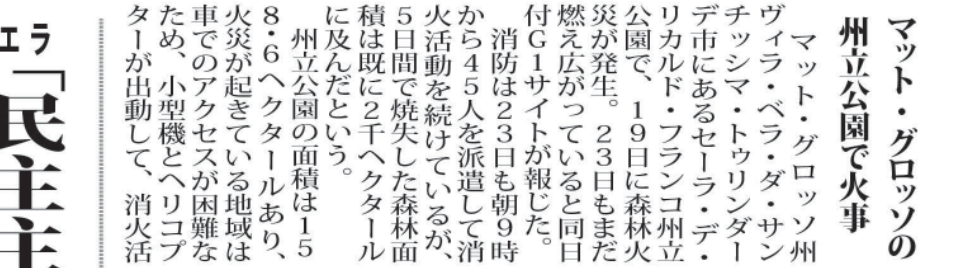 マット・グロッソの
州立公園で火事
マット・グロッソ州
ヴィラ・ベラ・ダ・サン
チッシマ・トゥリンダー
デ市にあるセーラ・デ・
リカルド・フランコ州立
公園で、19日に森林火
災が発生。23日もまだ
燃え広がっていると同日
付G1サイトが報じた。
消防は23日も朝9時
から45人を派遣して消
火活動を続けているが、
5日間で焼失した森林面
積は既に2千ヘクタール
に及んだという。
州立公園の面積は15
8・6ヘクタールあり、
火災が起きている地域は
車でのアクセスが困難な
ため、小型機とヘリコプ
ターが出動して、消火活
エラ
「民主主